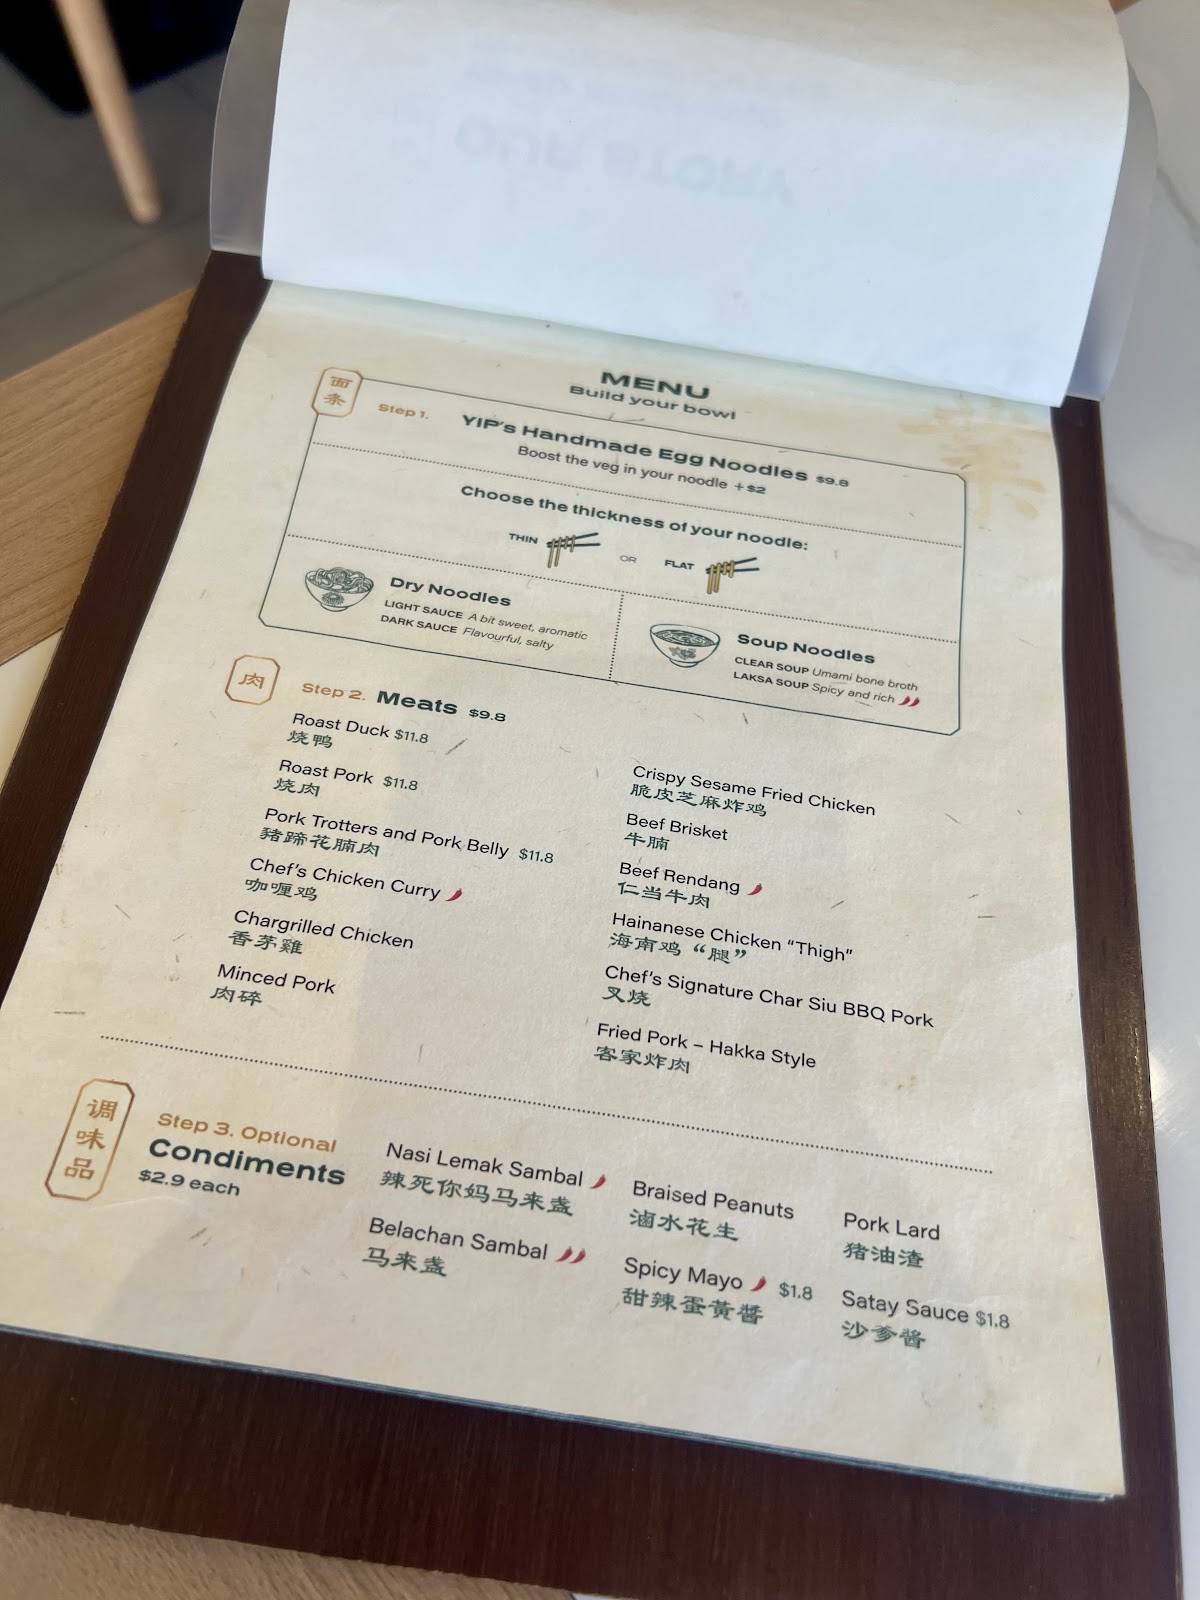 OUR STORY
MENU
Build your bowl
面条
Step 1. YIP's Handmade Egg Noodles $9.8
Boost the veg in your noodle +$2
Choose the thickness of your noodle:
THIN OR FLAT
Dry Noodles
LIGHT SAUCE A bit sweet, aromatic
DARK SAUCE Flavourful, salty
Soup Noodles
CLEAR SOUP Umami bone broth
LAKSA SOUP Spicy and rich
肉
Step 2. Meats $9.8
Roast Duck $11.8
烧鸭
Roast Pork $11.8
烧肉
Pork Trotters and Pork Belly $11.8
豬蹄花腩肉
Chef's Chicken Curry
咖喱鸡
Chargrilled Chicken
香茅雞
Minced Pork
肉碎
Crispy Sesame Fried Chicken
脆皮芝麻炸鸡
Beef Brisket
牛腩
Beef Rendang
仁当牛肉
Hainanese Chicken “Thigh”
海南鸡 “腿”
Chef's Signature Char Siu BBQ Pork
叉烧
Fried Pork – Hakka Style
客家炸肉
调味品
Step 3. Optional
Condiments
$2.9 each
Nasi Lemak Sambal
辣死你妈马来盏
Belachan Sambal
马来盏
Braised Peanuts
滷水花生
Spicy Mayo $1.8
甜辣蛋黃醬
Pork Lard
猪油渣
Satay Sauce $1.8
沙爹酱